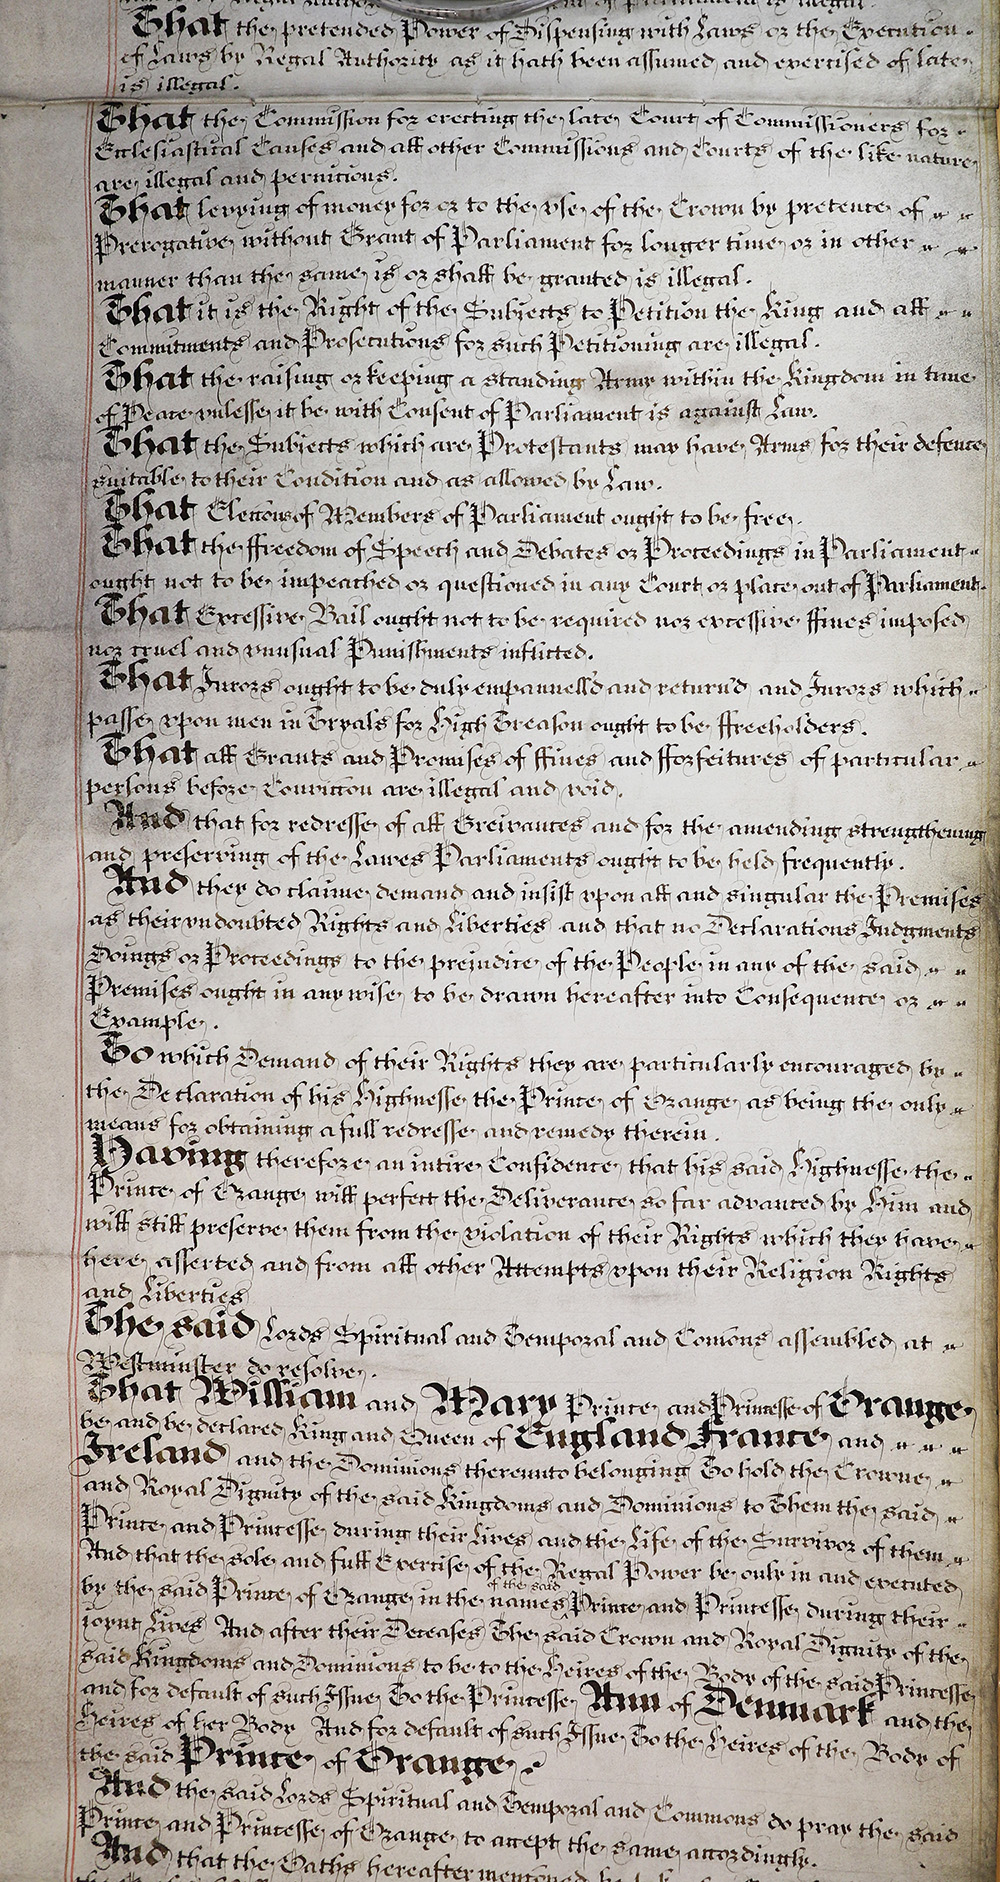 of Parliament is illegal.
That the pretended Power of Dispensing with Laws or the Execution
of Laws by Regal Authority as it hath been assumed and exercised of late
is illegal.
That the Commission for erecting the late Court of Commissioners for
Ecclesiastical Causes and all other Commissions and Courts of the like nature
are illegal and pernicious.
That levying of money for or to the vse of the Crown by pretence of
Prerogative without Grant of Parliament for longer time or in other
manner than the same is or shall be granted is illegal.
That it is the Right of the Subjects to Petition the King and all
Commitments and Prosecutions for such Petitioning are illegal.
That the raising or keeping a standing Army within the Kingdom in time
of Peace vnlesse it be with Consent of Parliament is against Law.
That the Subjects which are Protestants may have Arms for their defence
suitable to their Condition and as allowed by Law.
That Eleccons of Members of Parliament ought to be free.
That the ffreedom of Speech and Debates or Proceedings in Parliament
ought not to be impeached or questioned in any Court or place out of Parliament.
That Excessive Bail ought not to be required nor excessive ffines imposed
nor cruel and vnusual Punishments inflicted.
That Jurors ought to be duly empannell'd and return'd and Jurors which
passe vpon men in Tryals for High Treason ought to be ffreeholders.
That all Grants and Promises of ffines and fforfeitures of particular
persons before Conviccon are illegal and void.
And that for redresse of all Greivances and for the amending strengthening
and preserving of the Lawes Parliaments ought to be held frequently.
And they do claime demand and insist vpon all and singular the Premises
as their vndoubted Rights and Liberties and that no Declarations Judgments
Doings or Proceedings to the prejudice of the People in any of the said
Premises ought in any wise to be drawn hereafter into Consequence or
Example.
To which Demand of their Rights they are particularly encouraged by
the Declaration of his Highnesse the Prince of Orange as being the only
means for obtaining a full redresse and remedy therein.
Having therefore an intire Confidence that his said Highnesse the
Prince of Orange will perfect the Deliverance so far advanced by Him and
will still preserve them from the violation of their Rights which they have
here asserted and from all other Attempts vpon their Religion Rights
and Liberties
The said Lords Spiritual and Temporal and Comons assembled at
Westminster do resolve.
That William and Mary Prince and Princesse of Orange
be and be declared King and Queen of England France and
Ireland and the Dominions thereunto belonging To hold the Crowne
and Royal Dignity of the said Kingdoms and Dominions to Them the said
Prince and Princesse during their Lives and the Life of the Survivor of them
And that the sole and full Exercise of the Regal Power be only in and executed
by the said Prince of Orange in the names of the said Prince and Princesse during their
joynt Lives And after their Deceases The said Crown and Royal Dignity of the
said Kingdoms and Dominions to be to the Heires of the Body of the said Princesse
and for default of such Issue To the Princesse Ann of Denmark and the
Heires of her Body And for default of such Issue To the Heires of the Body of
the said Prince of Orange.
And the said Lords Spiritual and Temporal and Commons do pray the said
Prince and Princesse of Orange to accept the same accordingly.
And that the Oaths hereafter mentioned